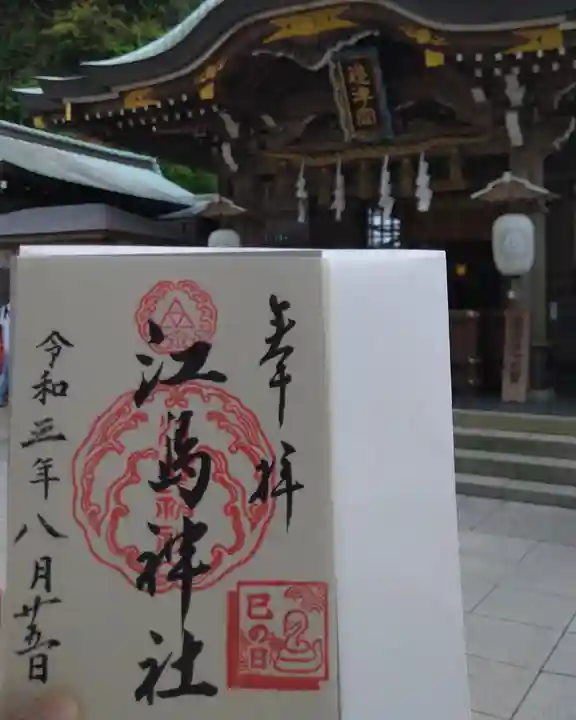 邊津宮
奉拝
江島神社
令和三年八月廿五日
巳の日